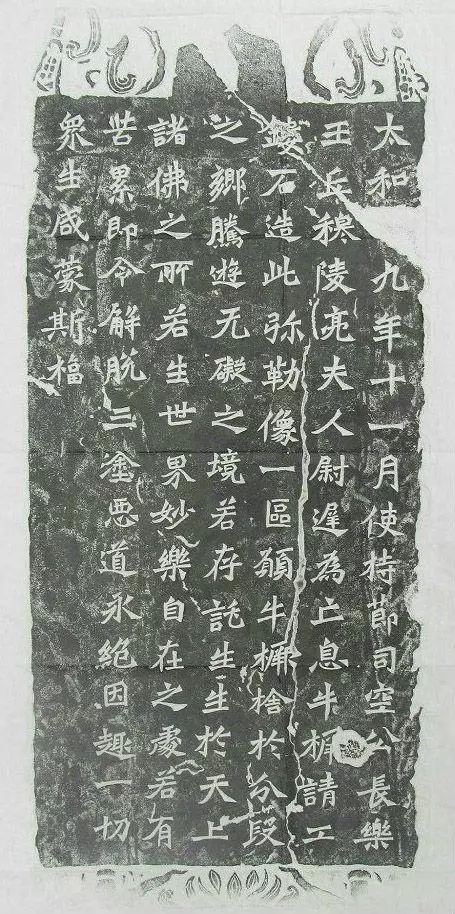 太和九年十一月使持節司空公長樂
王丘穆陵亮夫人尉遲為亡息牛橛請工
鏤石造此弥勒像一區願牛橛捨於分段
之鄉騰遊无礙之境若存託生生於天上
諸佛之所若生世界妙樂自在之處若有
苦累即令解脱三塗悪道永絕因趣一切
衆生咸蒙斯福